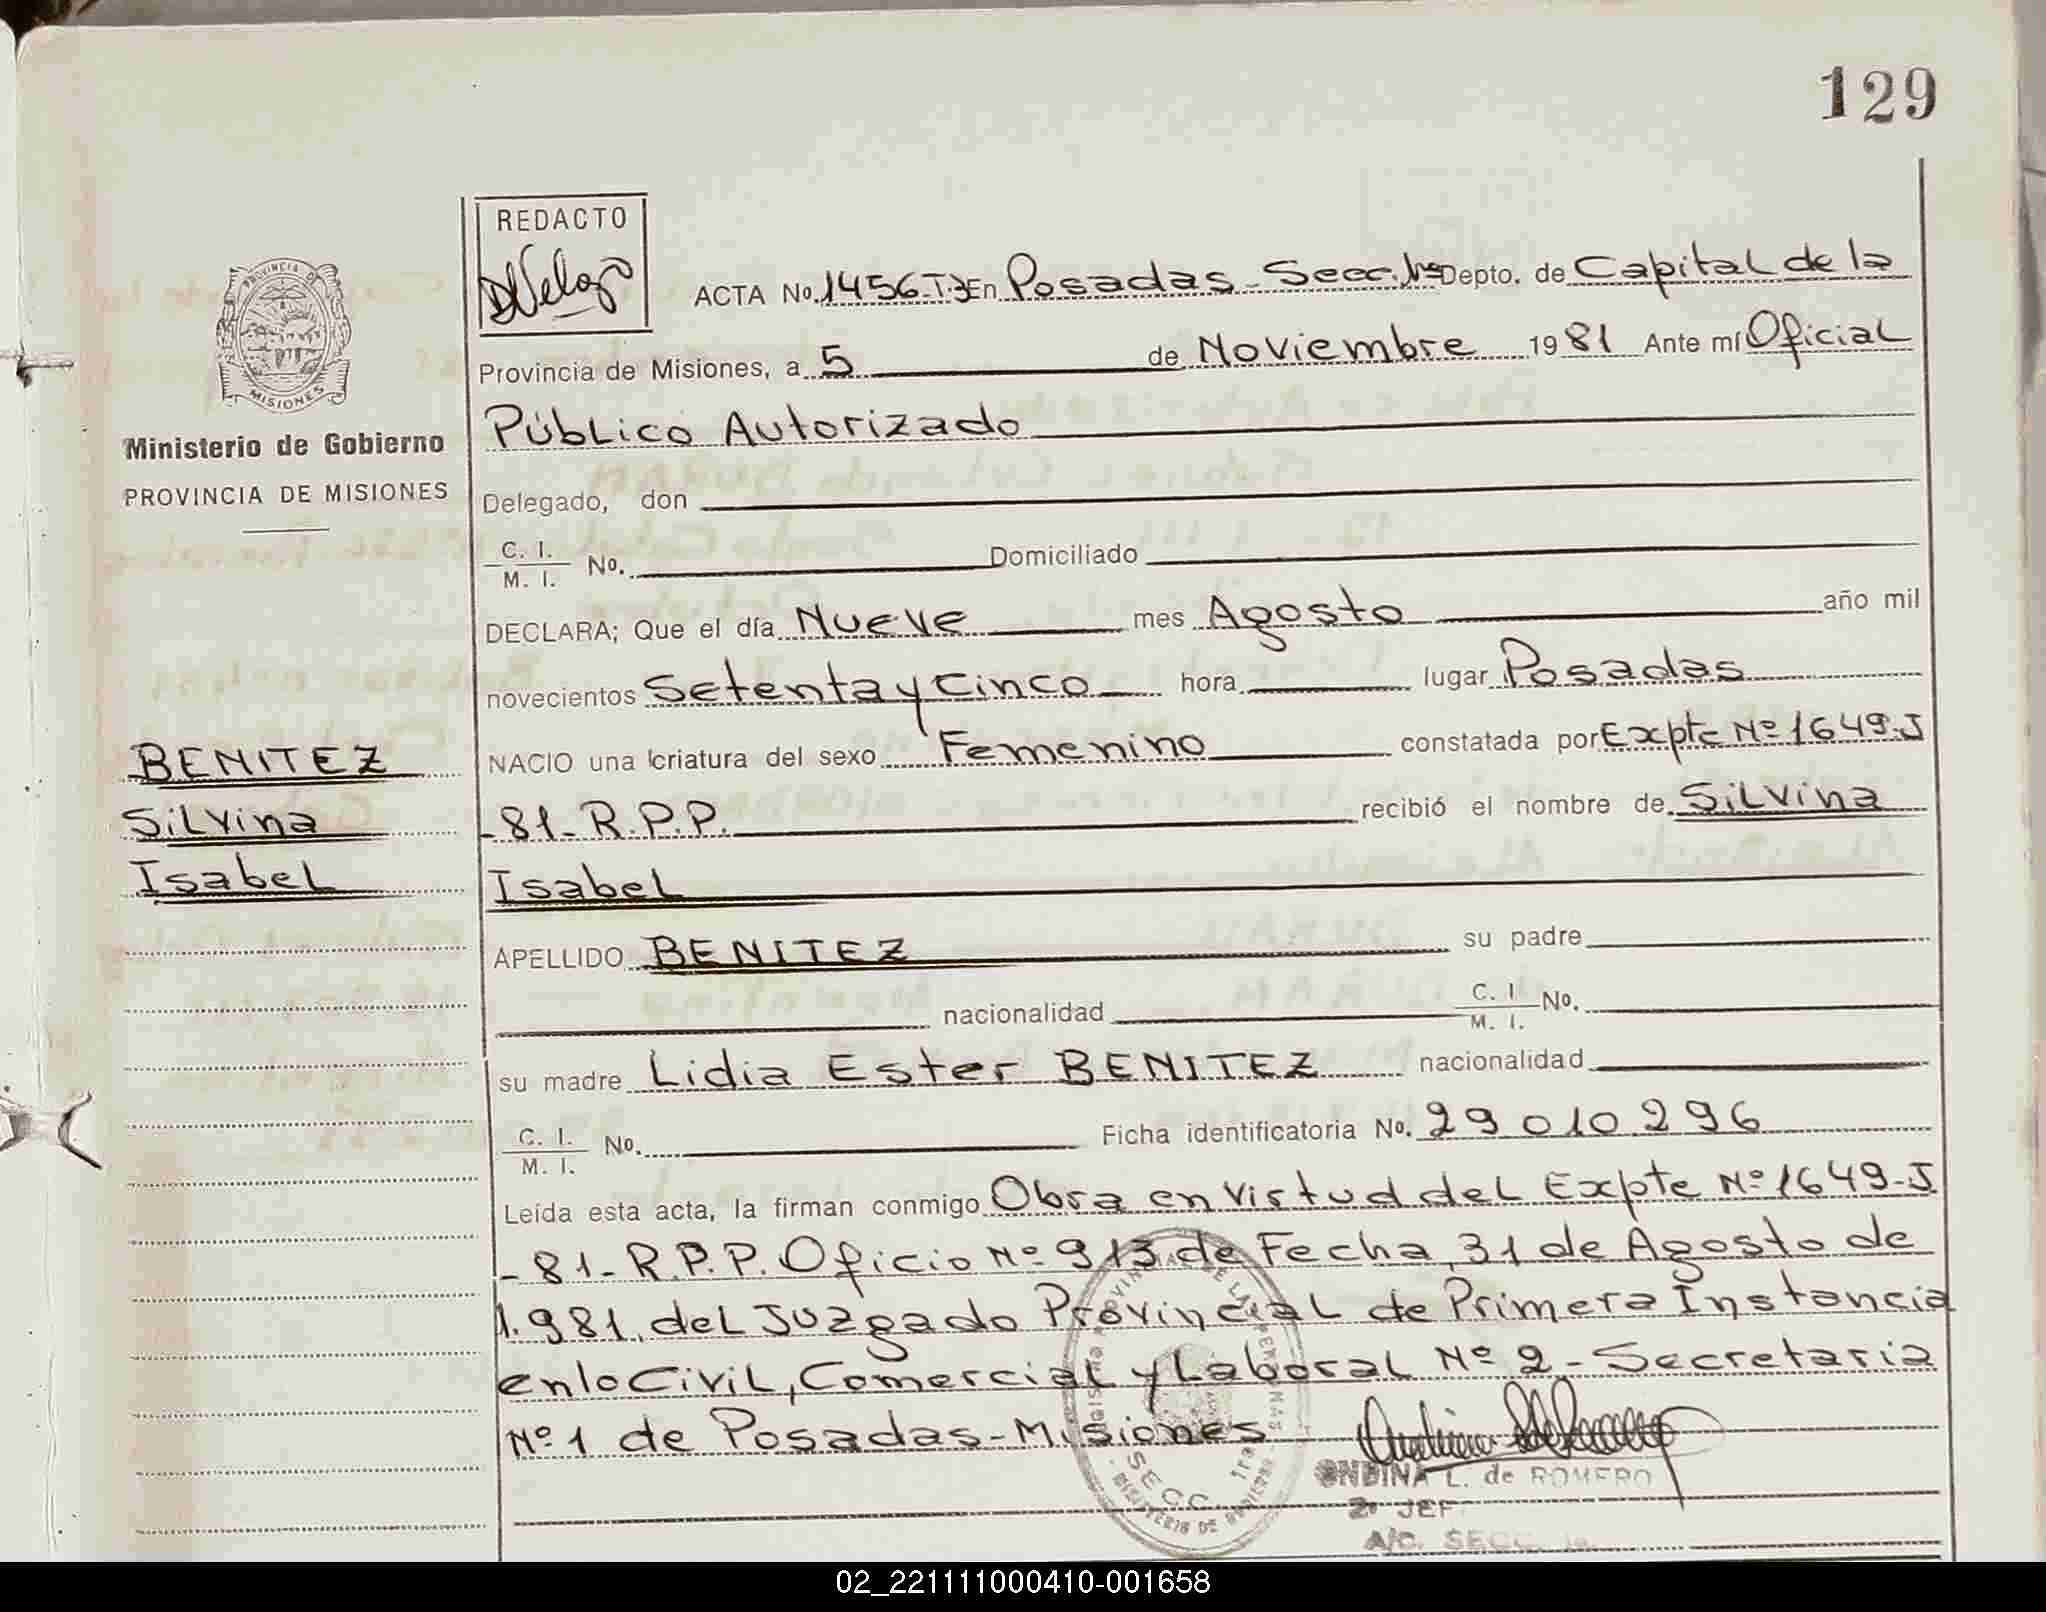 129
REDACTO
PROVINCIA DE
MISIONES
ACTA No. 1456-T.3 En Posadas - Secc. 1ra Depto. de Capital de la
Provincia de Misiones, a 5 de Noviembre 1981 Ante mí Oficial
Público Autorizado
Ministerio de Gobierno
PROVINCIA DE MISIONES
Delegado, don
C. I. M. I. No. Domiciliado
DECLARA; Que el día Nueve mes Agosto año mil
novecientos Setenta y Cinco hora lugar Posadas
BENITEZ
Silvina
Isabel
NACIO una criatura del sexo Femenino constatada por Expte Nº 1649-J
-81-R.P.P. recibió el nombre de Silvina
Isabel
APELLIDO BENITEZ su padre
nacionalidad C. I. M. I. No.
su madre Lidia Ester BENITEZ nacionalidad
C. I. M. I. No. Ficha identificatoria No. 29010296
Leída esta acta, la firman conmigo Obra en Virtud del Expte Nº 1649-J
-81-R.P.P. Oficio Nº 913 de Fecha 31 de Agosto de
1.981, del Juzgado Provincial de Primera Instancia
en lo Civil, Comercial y Laboral Nº 2 - Secretaria
Nº 1 de Posadas - Misiones
SECC. 1ra
ONDINA L. de ROMERO
2º JEF
A/C. SECC. 1a.
02_221111000410-001658